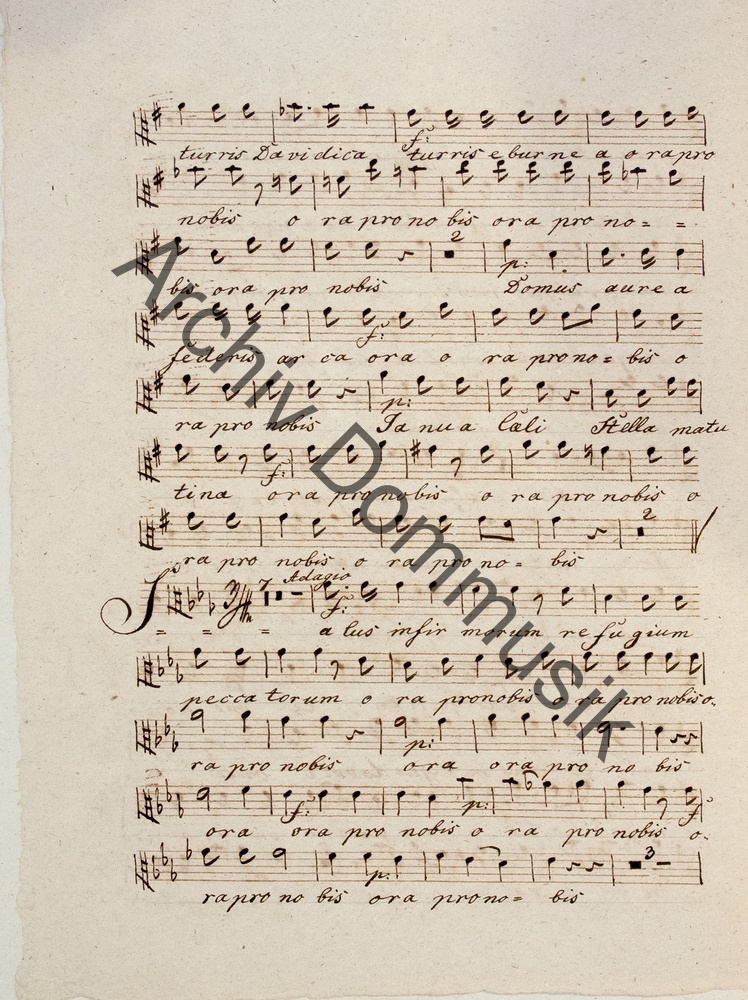 turris Davidica turris eburne a o ra pro
f:
nobis o ra pro no bis ora pro no= =
2
p:
bis ora pro nobis Domus aure a
f:
federis ar ca ora o ra pro no= bis o
p:
ra pro nobis Ja nu a Cæli Stella matu
f:
tina ora pro nobis o ra pro nobis o
2
ra pro nobis o ra pro no= bis
7 Adagio
f:
S = = = alus infir morum re fu gium
pecca torum o ra pronobis o ra pro nobis o.
p:
ra pro nobis ora ora pro no bis
f: p: f
ora ora pro nobis o ra pro nobis o.
3
p:
ra pro no bis ora pro no= bis
Archiv Dommusik